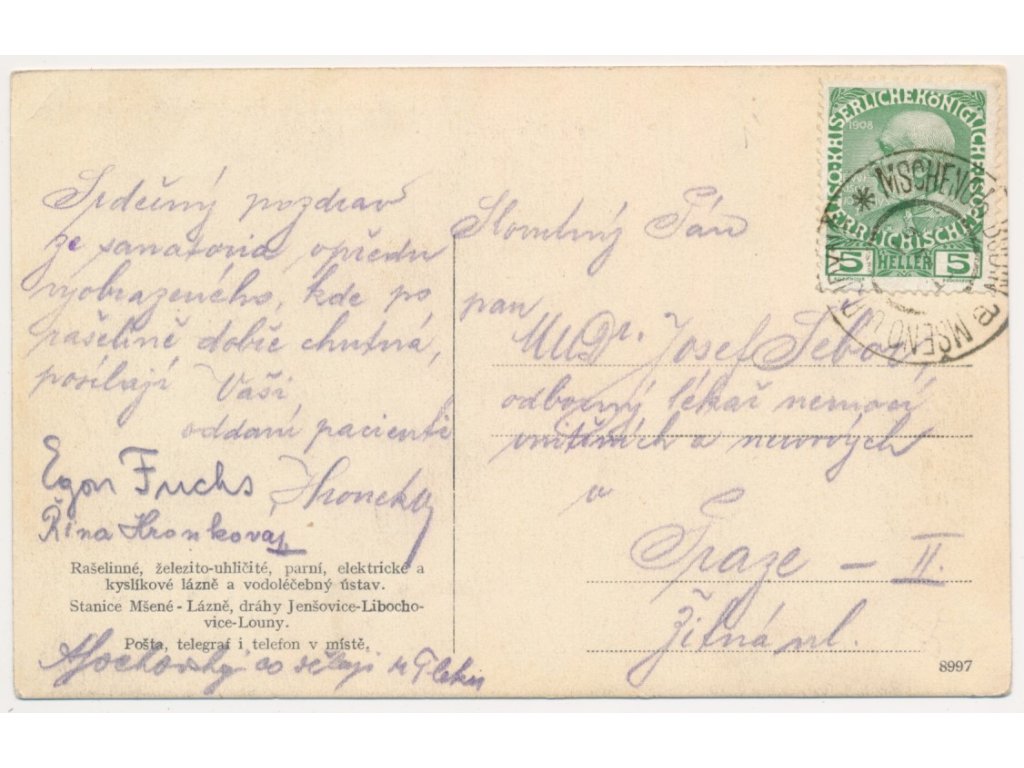 Srdečný pozdrav
ze sanatoria, vpředu
vyobrazeného, kde po
rašelině dobře chutná,
posílají Vaši
oddaní pacienti
Egon Fuchs
Řina Hronkova
Rašelinné, železito-uhličité, parní, elektrické a
kyslíkové lázně a vodoléčebný ústav.
Stanice Mšené - Lázně, dráhy Jenšovice-Libocho-
vice-Louny.
Pošta, telegraf i telefon v místě.
co dělají u Fleků
Slovutný Pán
pan
MUDr. Josef
odborný lékař nemocí
vnitřních a nervových
v
Praze - II.
Žitná ul.
8997
KAISERLICHE KÖNIGLICHE
ÖSTERREICHISCHE POST
1908
5 HELLER 5
MSCHENO
MŠENO U